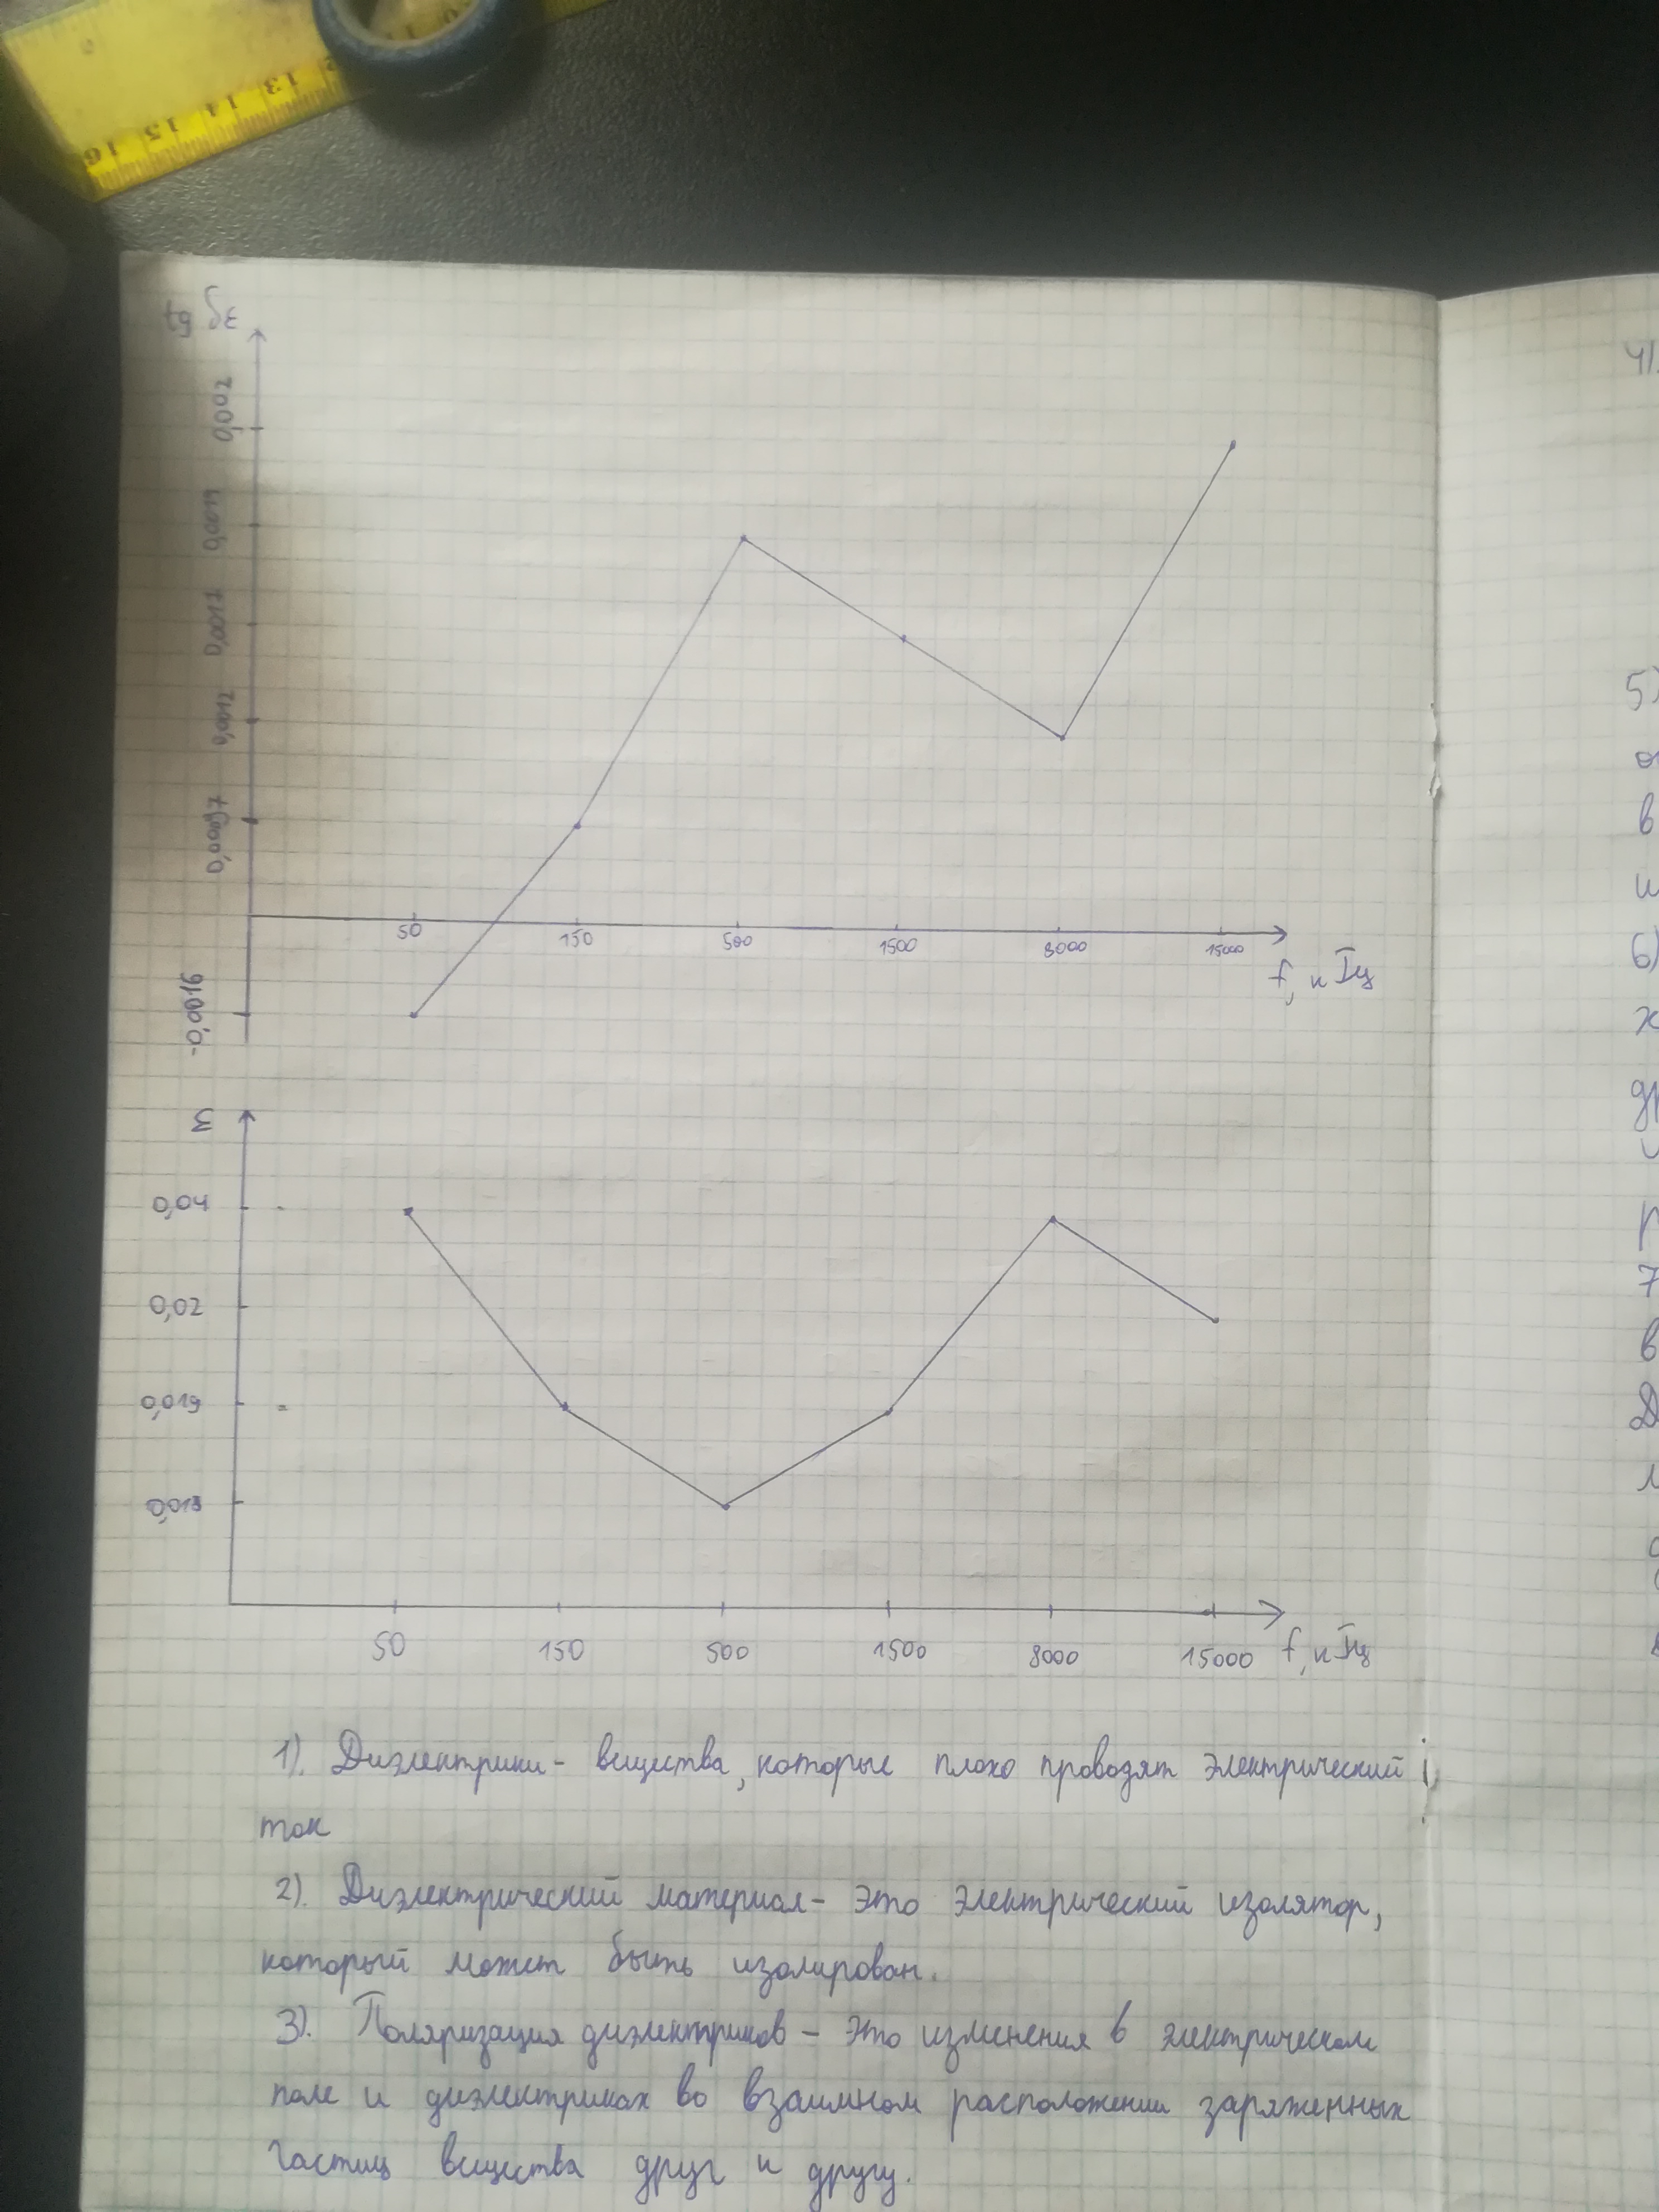 16 15 14 13
tg δε
0,002
0,0017
0,0012
0,00097
-0,0016
50 150 500 1500 8000 15000
f, кГц
ε
0,04
0,02
0,019
0,018
50 150 500 1500 8000 15000 f, кГц
1). Диэлектрики - вещества, которые плохо проводят электрический
ток
2). Диэлектрический материал - это электрический изолятор,
который может быть изолирован.
3). Поляризация диэлектриков - это изменения в электрическом
поле и диэлектриках во взаимном расположении заряженных
частиц вещества друг к другу.
4).
5)
в
6)
7
в